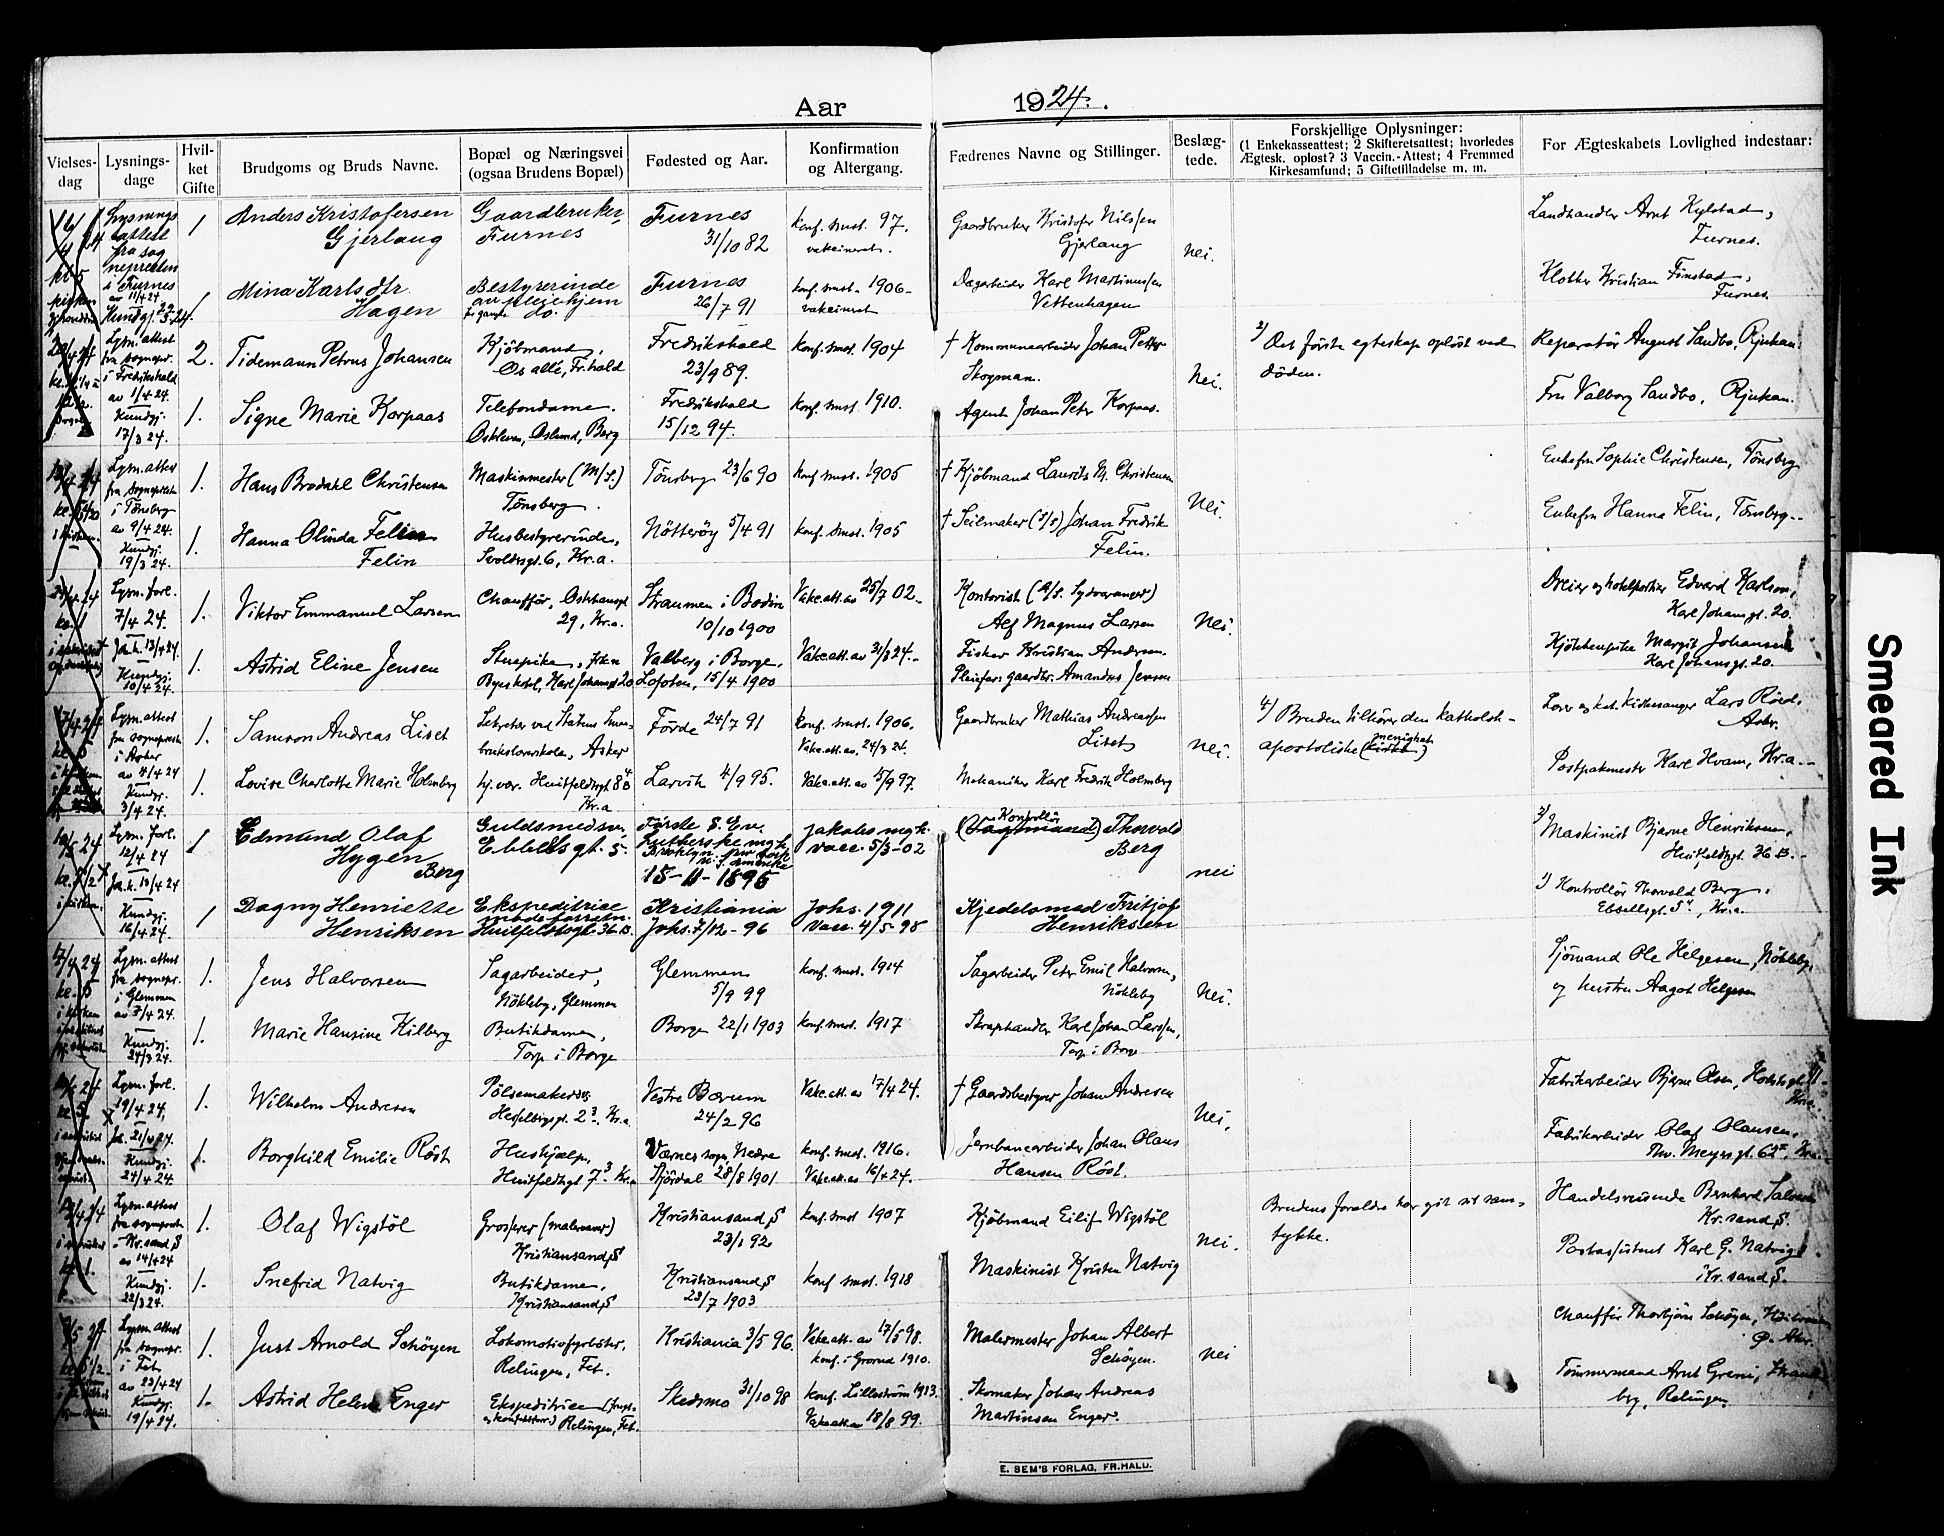 Aar 1924.
Vielses-dag
Lysnings-dage
Hvil-ket Gifte
Brudgoms og Bruds Navne.
Bopæl og Næringsvei (ogsaa Brudens Bopæl)
Fødested og Aar.
Konfirmation og Altergang.
Fædrenes Navne og Stillinger.
Beslæg-tede.
Forskjellige Oplysninger:
(1 Enkekasseattest; 2 Skifteretsattest; hvorledes
Ægtesk. opløst? 3 Vaccin.-Attest; 4 Fremmed
Kirkesamfund; 5 Giftetilladelse m. m.
For Ægteskabets Lovlighed indestaar:
1 Anders Kristofersen Gjerlaug
Gaardbruker, Furnes
Furnes 31/10 82
konf. smst. 97. vakcineret.
Gaardbruker Kristofer Nilssen Gjerlaug
nei.
Landhandler Arnt Kylstad, Furnes.
1 Mina Karlsdtr. Hagen
Bestyrerinde av pleiehjem do.
Furnes 26/7 91
konf. smst. 1906 - vakcineret
Dagarbeider Karl Martinussen Vettenhagen
Klokker Kristian Finstad, Furnes.
Lysn. attest fra sognepr. i Fredrikshald av 1/4 24. Kundgj. 17/3 24.
2. Tidemann Petrus Johansen
Kjöbmand, Os allé, Fr.hald
Fredrikshald 23/9 89.
konf. smst. 1904
† Kommunearbeider Johan Petter Skogman.
Nei.
2) Det förste egteskap oplöst ved döden.
Reparatör August Sandbo, Rjukan.
1. Signe Marie Korpaas
Telefondame. Berg
Fredrikshald 15/12 94.
konf. smst. 1910.
Agent Johan Peter Korpaas.
Fru Valborg Sandbo, Rjukan.
Lysn. attest fra sognepresten i Tönsberg av 9/4 24. Kundgj. 19/3 24.
1. Hans Brodahl Christensen
Maskinmester (M/S.) Tönsberg.
Tönsberg 23/6 90
konf. smst. 1905
† Kjöbmand Laurits M. Christensen
Nei.
Enkefru Sophie Christensen, Tönsberg
1. Hanna Olinda Felin Felin
Husbestyrerinde, Svoldersgt. 6, Kr.a.
Nötteröy 5/4 91
konf. smst. 1905
† Seilmaker (S/S) Johan Fredrik Felin.
Enkefru Hanna Felin, Tönsberg.
Lysn. forl. 7/4 24. Ja.k. 13/4 24. Kundgj. 10/4 24.
1. Viktor Emmanuel Larsen
Chaufför, 29, Kr.a.
Straumen i Bodin 10/10 1900
Vakc.att. av 25/7 02.
Kontorist (A/S. Sydvaranger) Alf Magnus Larsen
Nei.
Dreier og hotelportier Edvard Karlson, Karl Johansgt. 20.
1. Astrid Eline Jensen
Stuepike, Karl Johansgt 20
Valberg i Borge, Lofoten, 15/4 1900
Vakc.att. av 31/3 24.
Fisker Kristian Andersen.
Pleiefar: gaardbr. Amandus Jensen
Kjökkenpike Margit Johansen Karl Johansgt. 20.
Lysn. attest fra sognepresten i Asker av 4/4 24 Kundgj. 3/4 24.
1. Samson Andreas Liset
Sekretær ved Statens Smaabrukslærerskole, Asker
Förde 24/7 91
konf. smst. 1906. Vakc.att. av. 24/3 24.
Gaardbruker Mathias Andreassen Liset
nei.
4) Bruden tilhörer den katholsk-apostoliske (kirke) menighet
Lærer og Kirkesanger Lars Röed, Asker.
1. Lovise Charlotte Marie Holmberg
hj. vær. Huitfeldtsgt 8 B Kr.a
Larvik 4/9 95.
Vakc.att. av 5/9 97.
Mekaniker Karl Fredrik Holmberg
Postpakmester Karl Hvam, Kr.a
Lysn. forl. 12/4 24 Ja.k. 13/4 24 Kundgj. 16/4 24.
1 Edmund Olaf Hygen Berg
Guldsmedsv. Ebbellsgt. 5.
Förste E. Ev. Lutherske mgh. Brooklyn 15-11-1895
Jakobs mgh. vacc. 5/3-02
(Sagmand) Kontrollör Thorvald Berg
nei
2) Maskinist Bjarne Henriksen, Huitfeldtsgt. 36 B.
1 Dagny Henriette Henriksen
Ekspeditrice modeforretn. Huitfeldtsgt. 36 B.
Kristiania Johs. 7/12-96
Johs. 1911 Vacc. 4/5-98
Kjedelsmed Fritjof Henriksen
1) Kontrollör Thorvald Berg, Ebbellsgt. 5, Kr.a.
Lysn. attest fra sognepr. i Glemmen av 7/4 24. Kundgj. 24/3 24.
1. Jens Halvorsen
Sagarbeider, Nökleby, Glemmen
Glemmen 5/9 99
konf. smst. 1914
Sagarbeider Peter Emil Halvorsen, Nökleby
Nei.
Sjömand Ole Helgesen, Nökleby, og hustru Aagot Helgesen
1. Marie Hansine Kilberg
Butikdame, Torp i Borge
Borge 22/1 1903
konf. smst. 1917
Skraphandler Karl Johan Larssen, Torp i Borge
Lysn. forl. 19/4 24, Ja. 21/4 24. Kundgj. 24/4 24.
1. Wilhelm Andresen
Pölsemaker Hesselbergsgt. 2, Kr.a.
Vestre Bærum 24/2 96
Vakc.att. av 17/4 24.
† Gaardsbestyrer Johan Andresen
Nei.
Fabrikarbeider Bjarne Olsen, Kr.a.
1. Borghild Emilie Röst
Hushjælp, Huitfeldtsgt 7, Kr.a
Værnes sogn, Nedre Stjördal 28/8 1901
konf. smst. 1916. Vakc.att. av 16/4 24.
Jernbanearbeider Johan Olaus Hansen Röst.
Fabrikarbeider Olaf Olausen, Thv. Meyersgt. 62, Kr.a
Lysn. attest fra sognepresten i Kr.sand S av 14/4 24 Kundgj. 22/3 24.
1. Olaf Wigstöl
Grosserer (malervarer) Kristiansand S
Kristiansand S 23/1 92
konf. smst 1907
Kjöbmand Eilif Wigstöl
Nei.
Brudens foreldre har git sit samtykke.
Handelsreisende Bernhard Kr.sand S.
1. Snefrid Natvig
Butikdame, Kristiansand S
Kristiansand S 23/7 1903
konf. smst. 1918
Maskinist Kristen Natvig
Postassistent Karl G. Natvig Kr.sand S.
Lysn. attest fra sognepr. i Fet, av 23/4 24 Kundgj. 19/4 24.
1. Just Arnold Schöyen
Lokomotivfyrböter, Relingen, Fet.
Kristiania 3/5 96.
Vakc.att. av 17/5 98. konf. i Grorud 1910.
Malermester Johan Albert Schöyen.
nei
Chauffør Thorbjörn Schöyen,
1. Astrid Helene Enger
Ekspeditrice Relingen, Fet.
Skedsmo 31/10 98
konf. Lilleström 1913. Vakc.att. av 18/8 99.
Skomaker Johan Andreas Martinsen Enger.
Tömmermand Arnt Greni, Relingen
E. SEM'S FORLAG, FR.HALD.
Smeared Ink